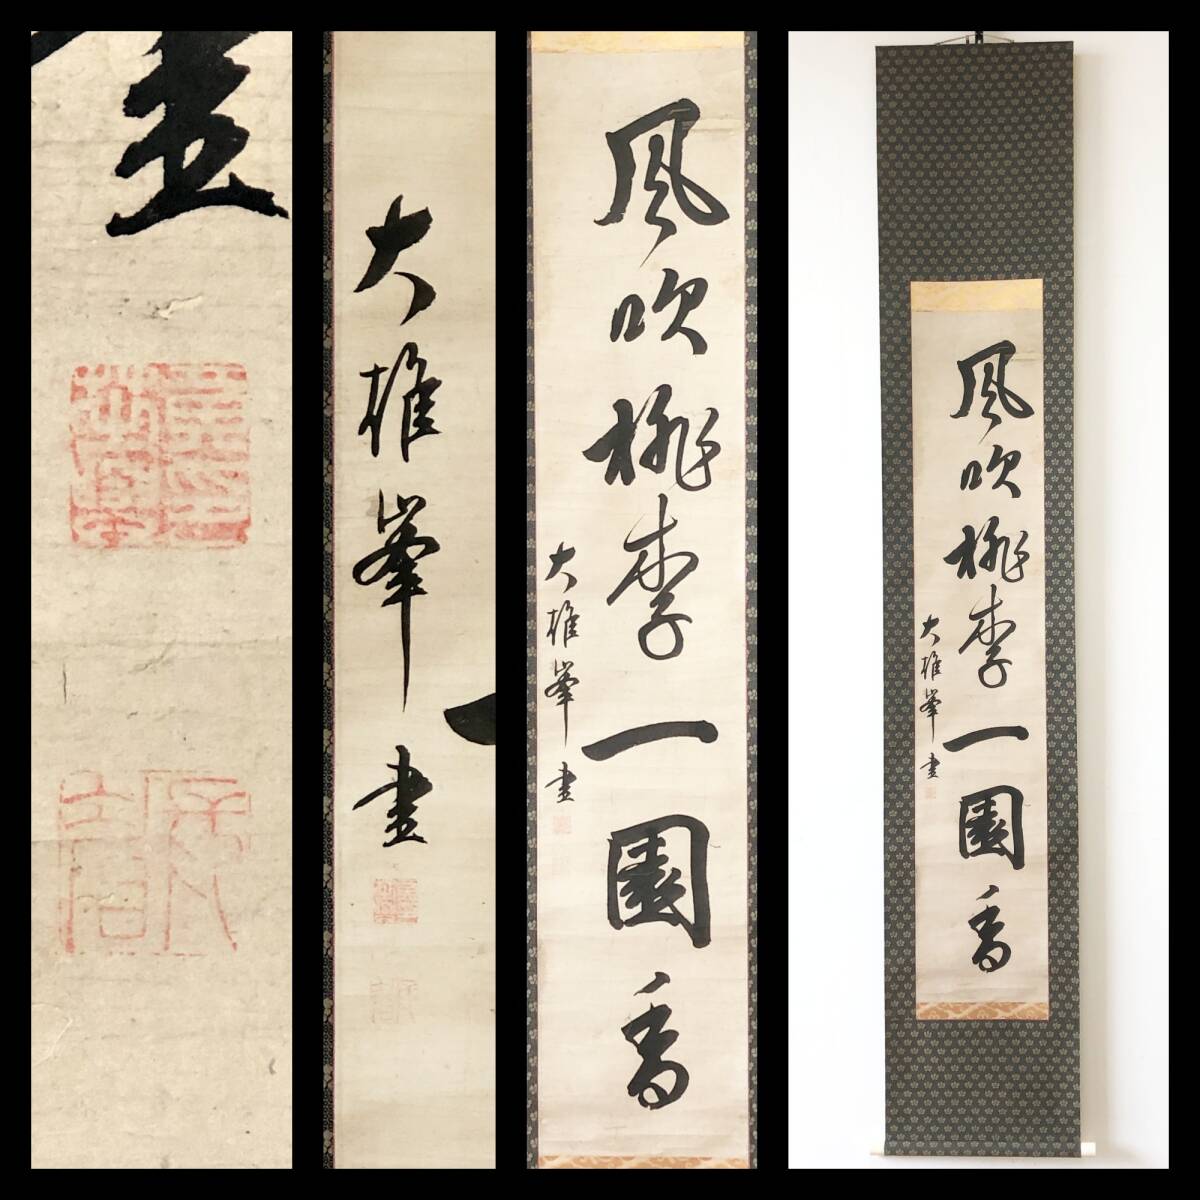 大雄峯書
風吹桃李一園香
大雄峯書
風吹桃李一園香
大雄峯書